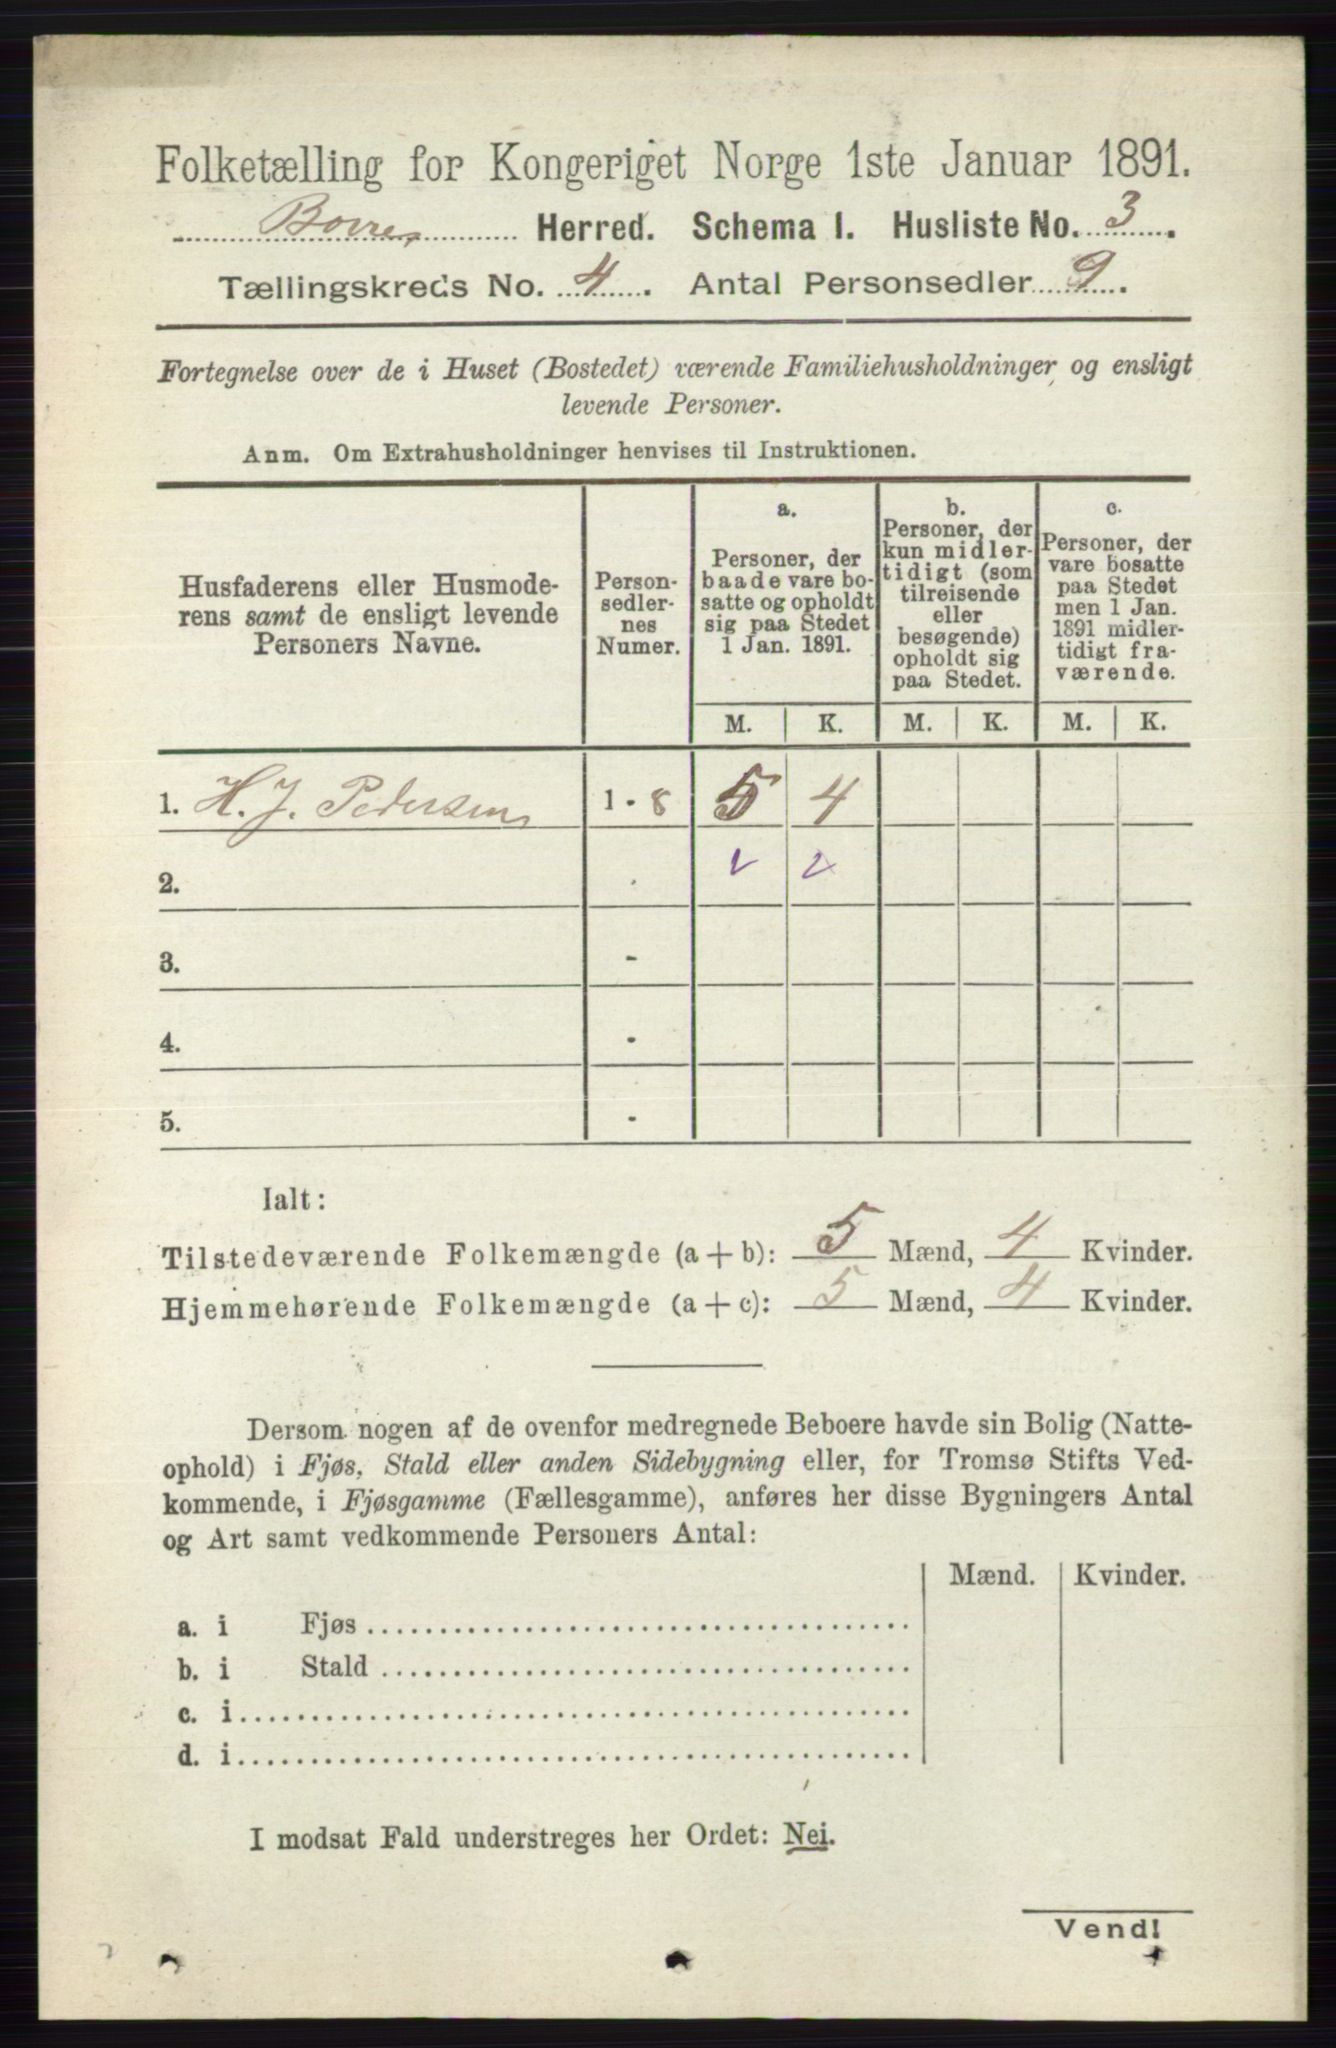 Folketælling for Kongeriget Norge 1ste Januar 1891.
Borre Herred. Schema I. Husliste No. 3.
Tællingskreds No. 4. Antal Personsedler 9.
Fortegnelse over de i Huset (Bostedet) værende Familiehusholdninger og ensligt
levende Personer.
Anm. Om Extrahusholdninger henvises til Instruktionen.
Husfaderens eller Husmode-
rens samt de ensligt levende
Personers Navne.
Person-
sedler-
nes
Numer.
a.
Personer, der
baade vare bo-
satte og opholdt
sig paa Stedet
1 Jan. 1891.
b.
Personer, der
kun midler-
tidigt (som
tilreisende
eller
besøgende)
opholdt sig
paa Stedet.
c.
Personer, der
vare bosatte
paa Stedet
men 1 Jan.
1891 midler-
tidigt fra-
værende.
M. K. M. K. M. K.
1. H. J. Pedersen 1 - 8 5 4
2.
3. -
4. -
5. -
Ialt:
Tilstedeværende Folkemængde (a + b): 5 Mænd, 4 Kvinder.
Hjemmehørende Folkemængde (a + c): 5 Mænd, 4 Kvinder.
Dersom nogen af de ovenfor medregnede Beboere havde sin Bolig (Natte-
ophold) i Fjøs, Stald eller anden Sidebygning eller, for Tromsø Stifts Ved-
kommende, i Fjøsgamme (Fællesgamme), anføres her disse Bygningers Antal
og Art samt vedkommende Personers Antal:
Mænd. Kvinder.
a. i Fjøs
b. i Stald
c. i
d. i
I modsat Fald understreges her Ordet: Nei.
Vend!